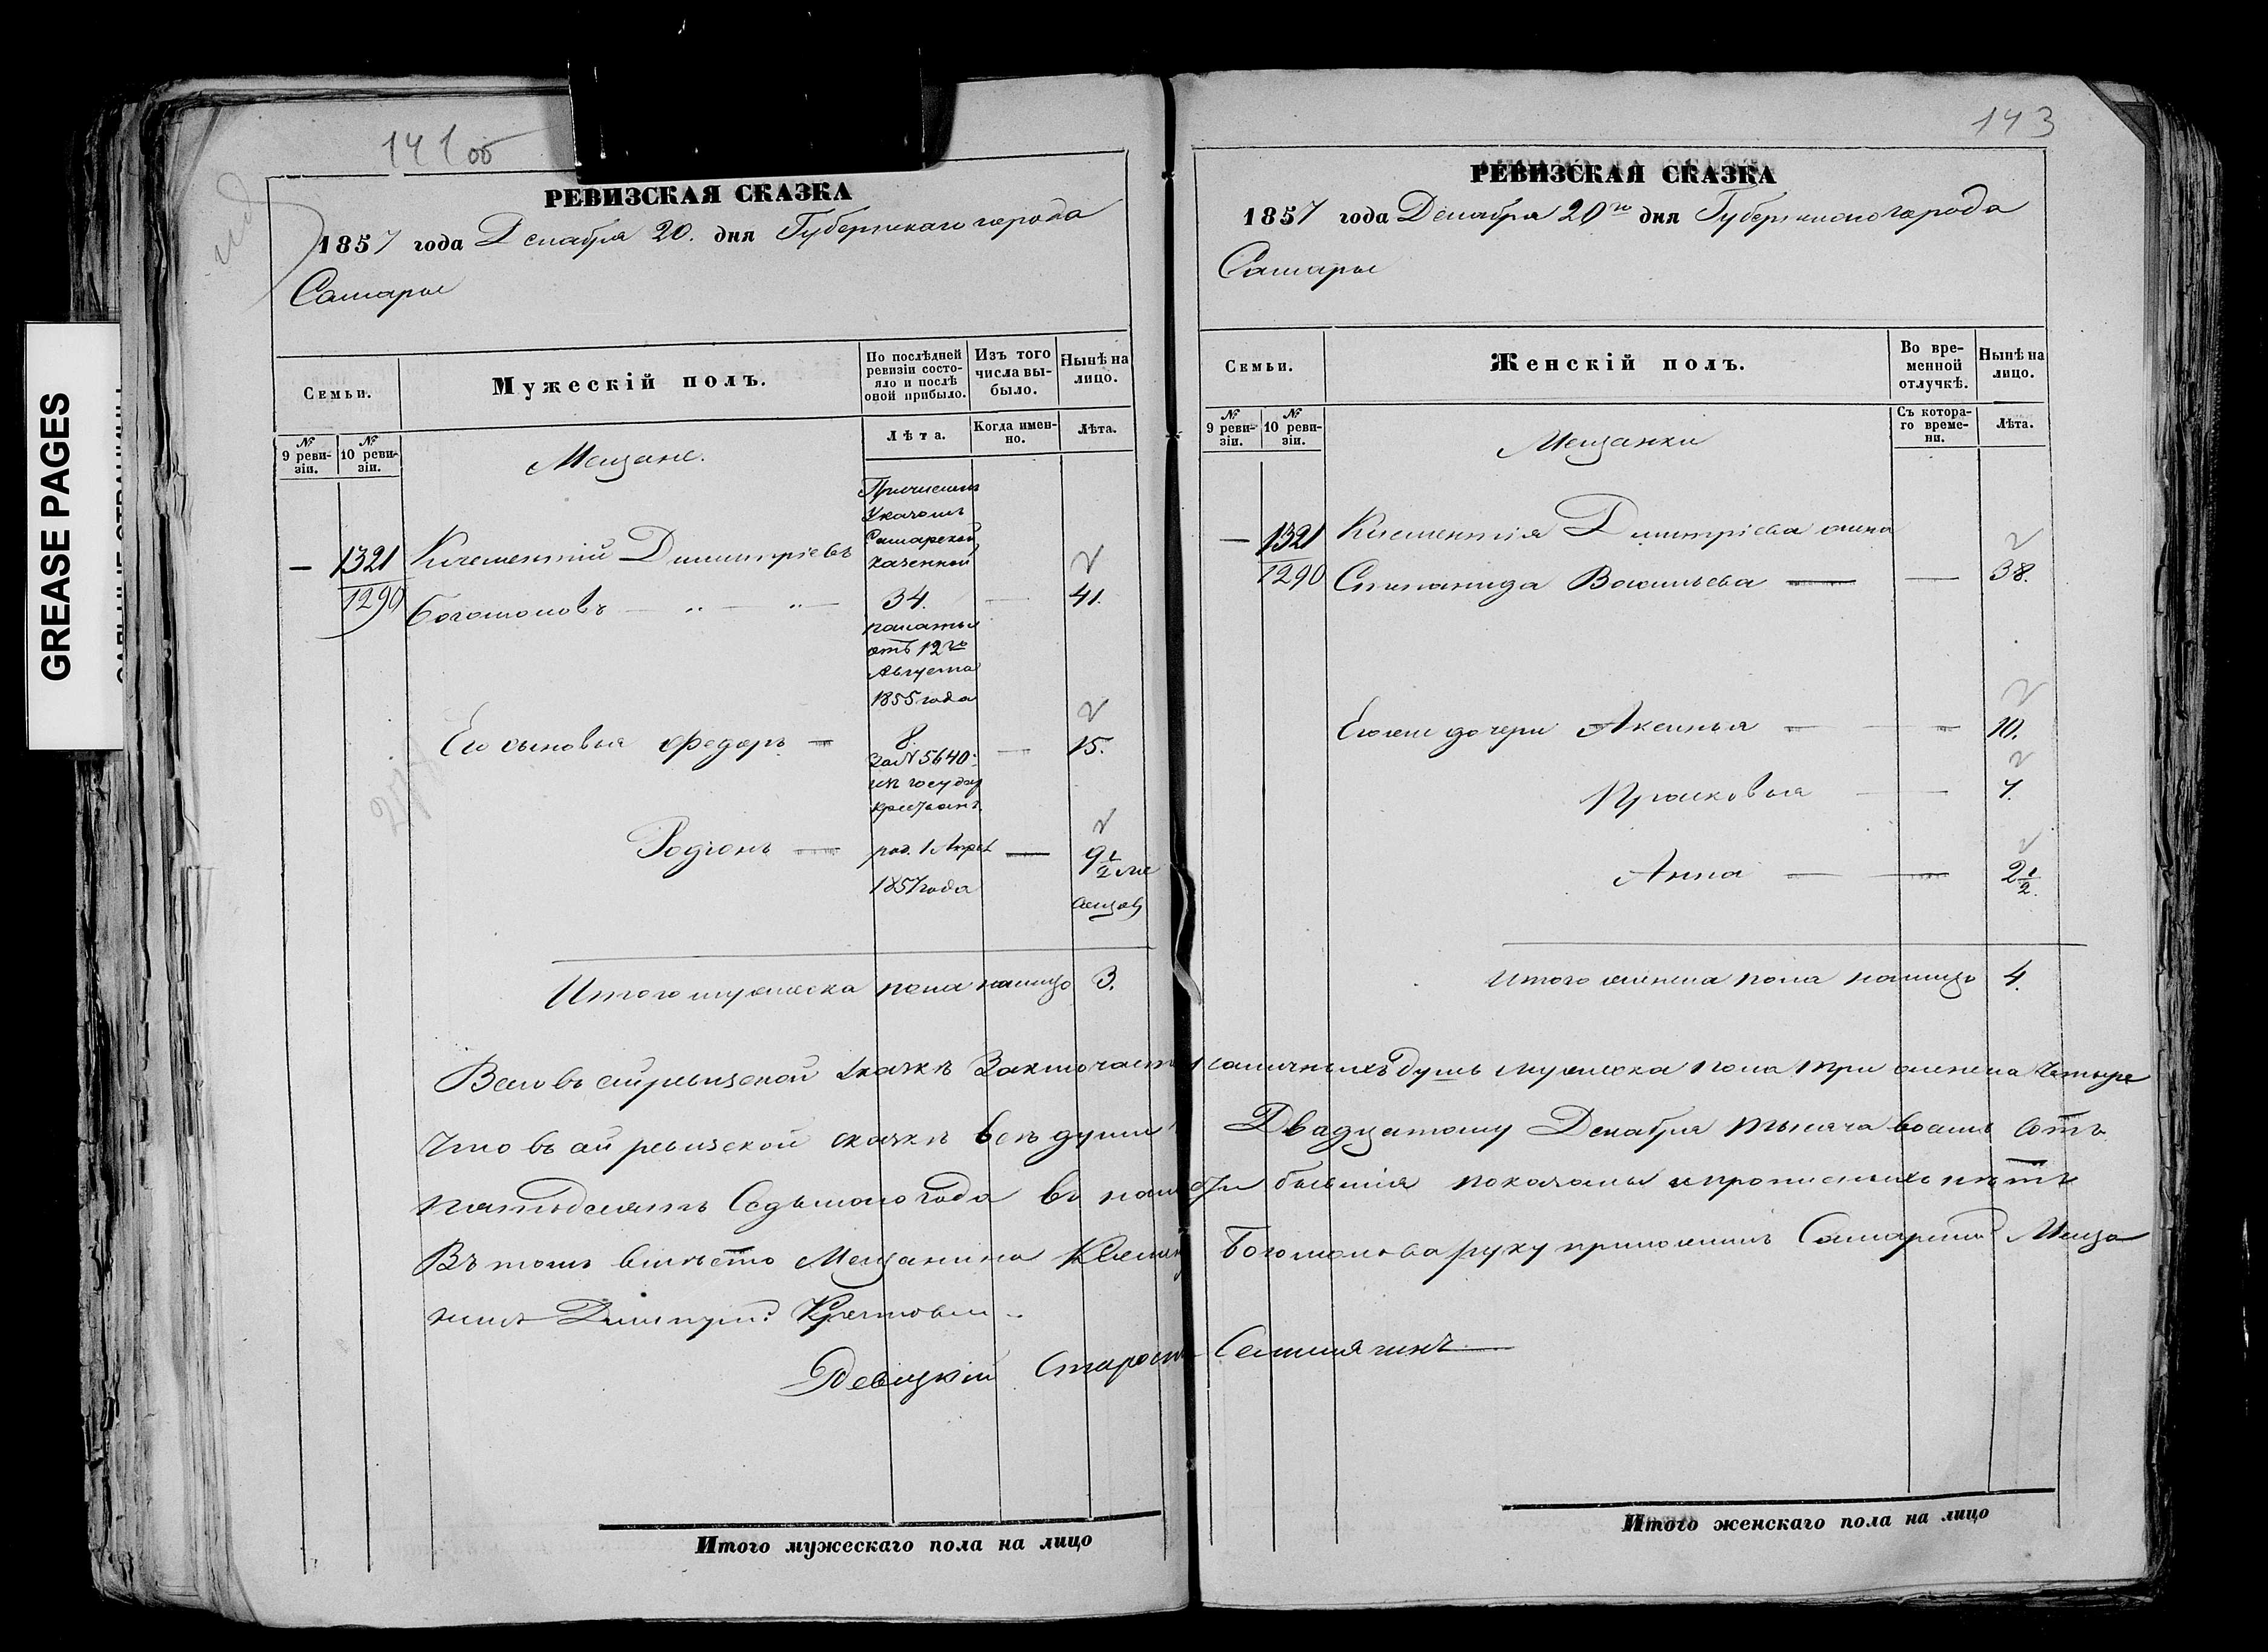 GREASE PAGES
141 об
РЕВИЗСКАЯ СКАЗКА
1857 года Декабря 20. дня Губернскаго города
Самары
Семьи.
Мужескій полъ.
По послѣдней ревизіи состояло и послѣ оной прибыло.
Изъ того числа выбыло.
Нынѣ на лицо.
№ 9 ревизіи.
№ 10 ревизіи.
Лѣта.
Когда именно.
Лѣта.
Мещане.
Причислен
Указомъ
Самарской
казенной
— 1321 Климентій Димитріевъ
1290 Богомоловъ 34. — 41.
палаты
отъ 12го
Августа
1855 года
Его сыновья Федоръ — 8. — 15.
за N 5640
из государ
крестьянъ
Родіонъ — род. 1 Апрел — 9 1/2 ме
1857 года сяцов
Итого мужеска пола налицо 3.
Всего въ сей ревизской сказкѣ Заключает
Что въ сей ревизской сказкѣ всѣ души
пятьдесятъ Седьмого года въ
Въ томъ вмѣсто Мещанина Климен
нинъ Дмитрій
Староста
Итого мужескаго пола на лицо
143
РЕВИЗСКАЯ СКАЗКА
1857 года Декабря 20го дня Губернскаго города
Самары
Семьи.
Женскій полъ.
Во временной отлучкѣ.
Нынѣ на лицо.
№ 9 ревизіи.
№ 10 ревизіи.
Съ котораго времени.
Лѣта.
Мещанки
— 1321 Климентія Димитріева жена
1290 Степанида Васильева — — 38.
Его же дочери Аксинья — — 10.
Прасковья — 7.
Анна — — 2 1/2.
Итого женска пола налицо 4.
наличныхъ душъ мужеска пола три женска четыре
Двадцатому Декабря тысяча восемь сотъ
бывшія показаны и прописныхъ нѣтъ
Богомолова руку приложилъ Самарскій Меща
Итого женскаго пола на лицо